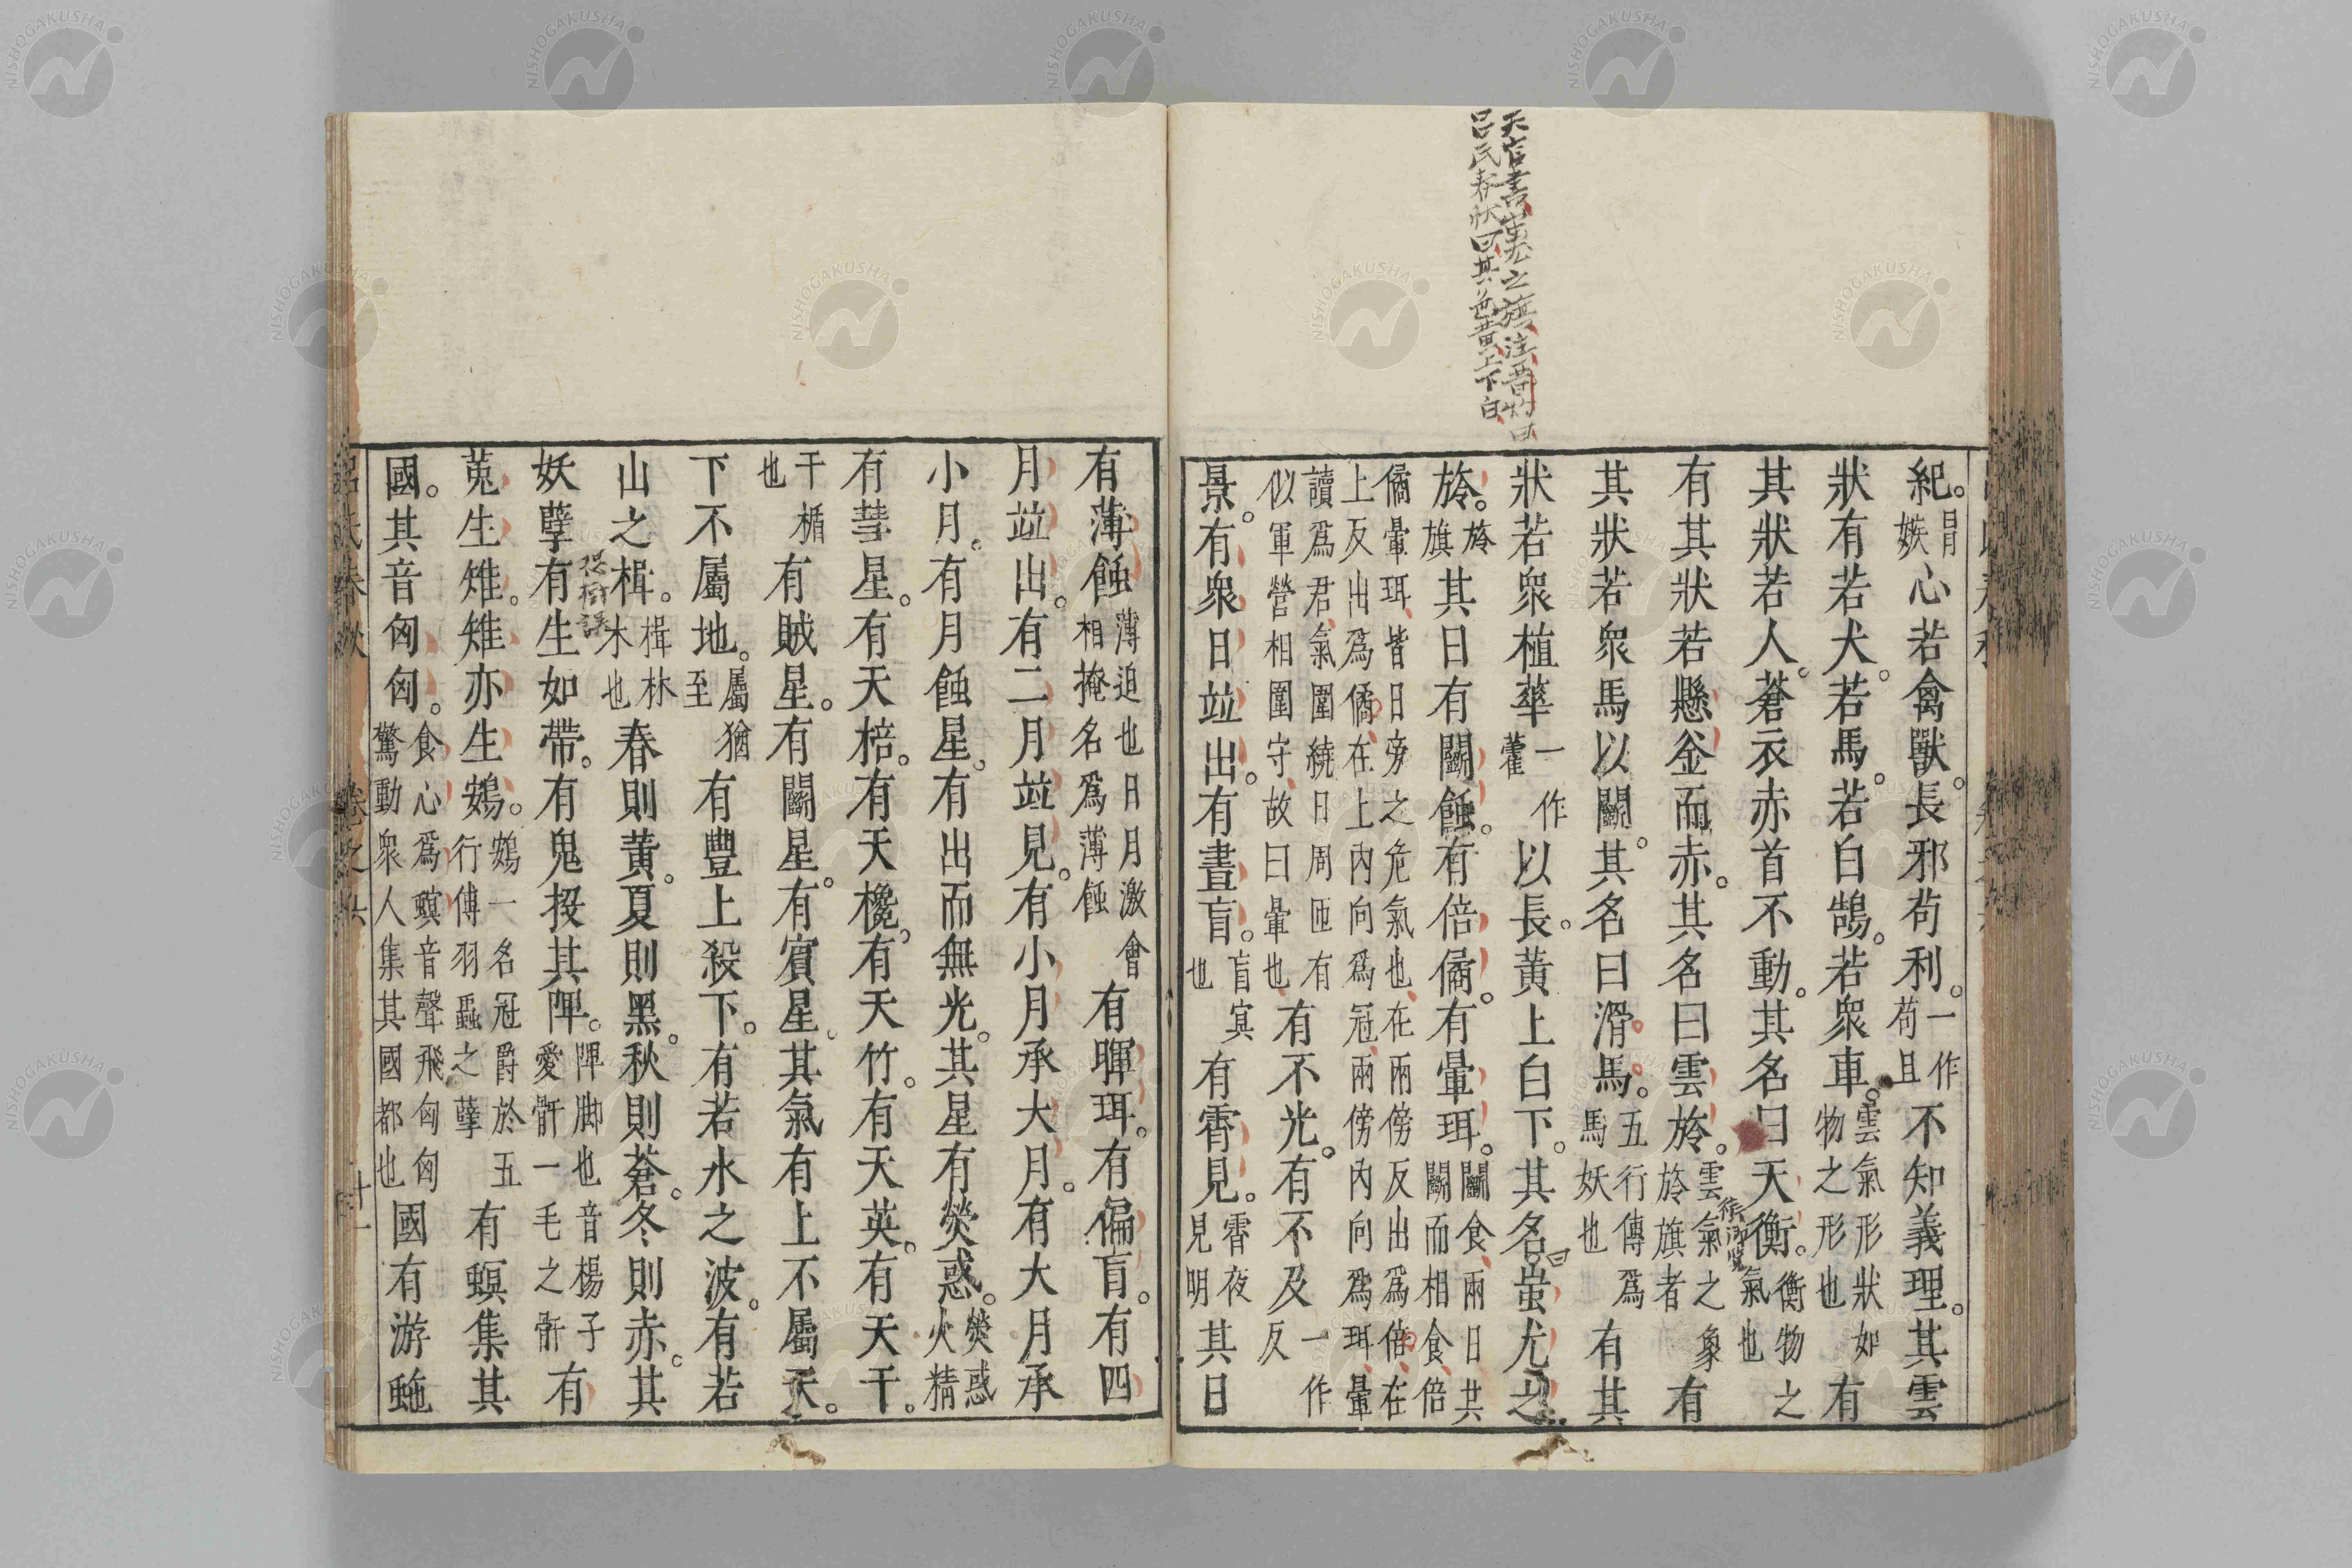 天官書蚩尤之旗注晉灼曰
呂氏春秋曰其色黄上下白
紀。冒嫉心若禽獸。長邪茍利。一作茍且不知義理。其雲
狀有若犬。若馬。若白鵠。若衆車。雲氣形狀如物之形也有
其狀若人。蒼衣赤首不動。其名曰天衡。衡物之氣也
有其狀若懸釡而赤。其名曰雲旍。雲氣之象旍旗者有
其狀若衆馬以鬭。其名曰滑馬。五行傳爲馬妖也有其
狀若衆植華一作藿以長。黄上白下。其名曰蚩尤之
旍。旍旗其日有鬭蝕。有倍僪。有暈珥。鬭食兩日共鬭而相食倍
僪暈珥皆日旁之危氣也在兩傍反出爲倍在上反出爲僪在上内向爲冠兩傍内向爲珥暈
讀爲君氣圍繞日周匝有似軍營相圍守故曰暈也有不光。有不及一作反
景。有衆日竝出。有晝盲。盲冥也有霄見。霄夜見明其日
有薄蝕。薄迫也日月激會相掩名爲薄蝕有暉珥。有偏盲。有四
月竝出。有二月竝見。有小月承大月。有大月承
小月。有月蝕星。有出而無光。其星有熒惑。熒惑火精
有彗星。有天棓。有天欃。有天竹。有天英。有天干。
干楯也有賊星。有鬭星。有賓星。其氣有上不屬天。
下不屬地。屬猶至有豐上殺下。有若水之波。有若
山之楫。楫林木也春則黄。夏則黑。秋則蒼。冬則赤。其
妖孽有生如帶。有鬼投其陴。陴脚也音楊子愛骭一毛之骭有
菟生雉。雉亦生鴳。鴳一名冠爵於五行傳羽蟲之孽有螟集其
國。其音匈匈。食心爲螟音聲飛匈匈驚動衆人集其國都也國有游虵
呂氏春秋
卷之六
十一